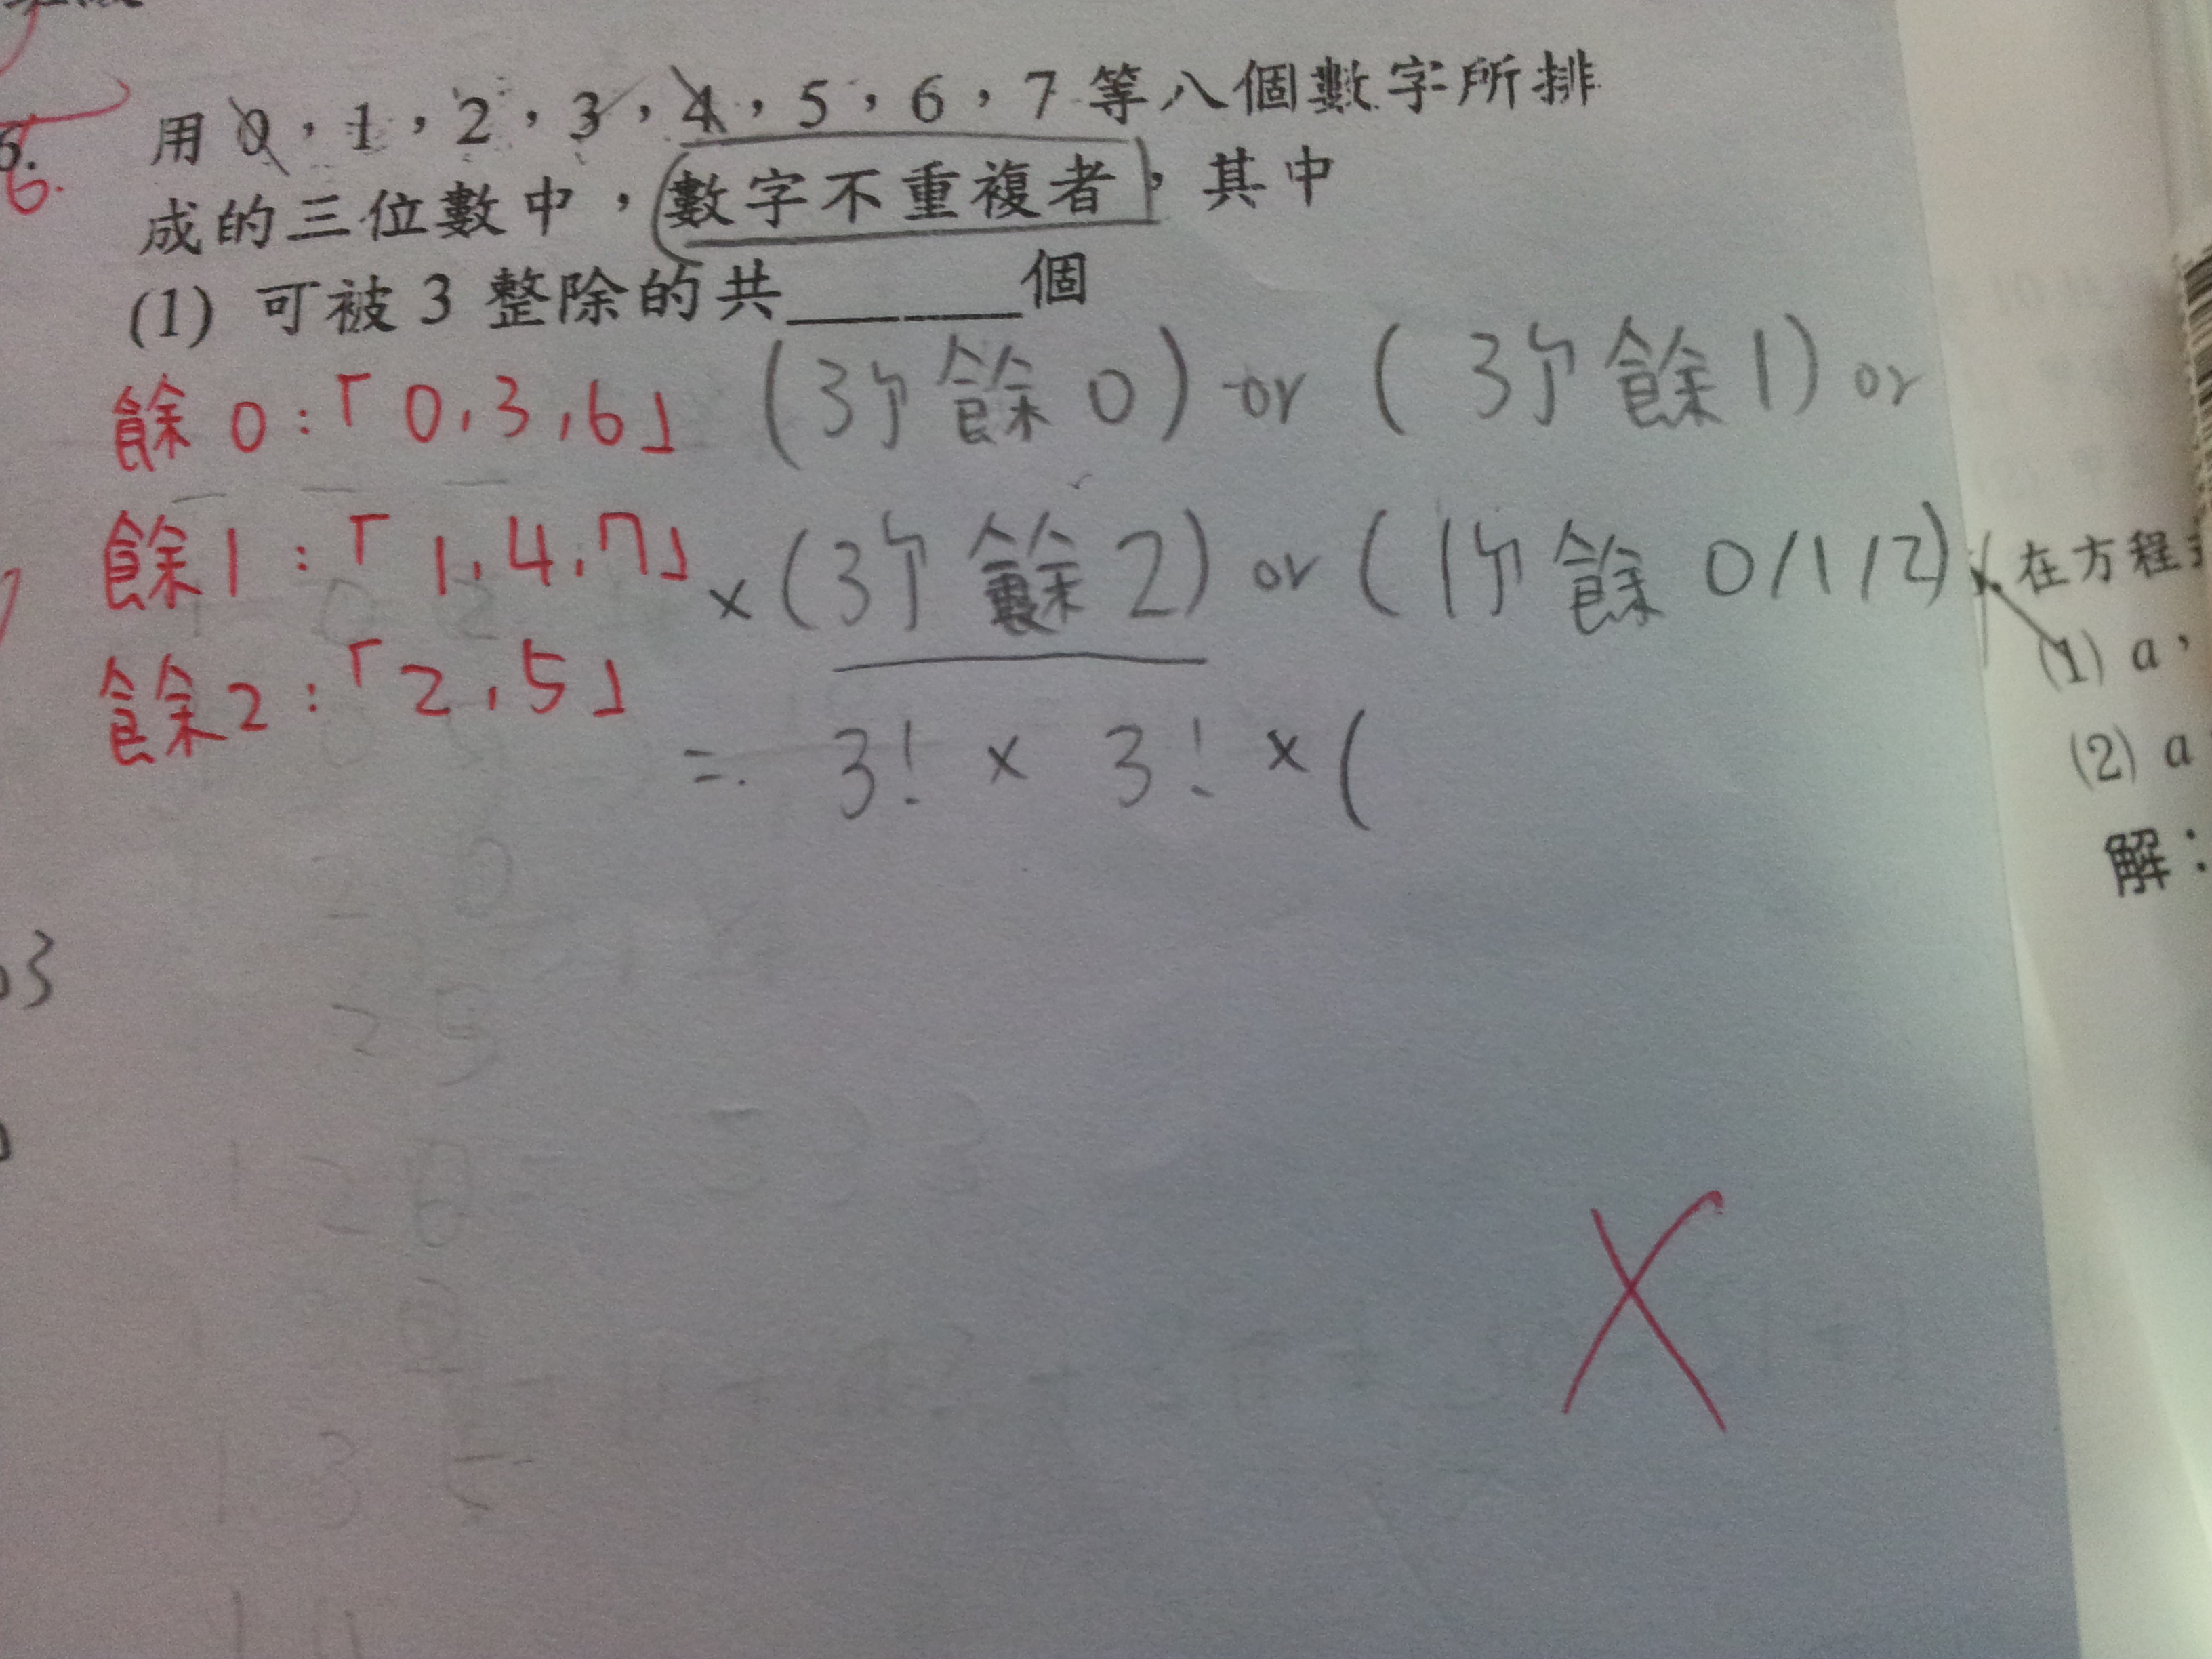 6.
用 0，1，2，3，4，5，6，7 等八個數字所排
成的三位數中，數字不重複者，其中
(1) 可被 3 整除的共______個
餘 0：「0, 3, 6」 (3个餘 0) or (3个餘 1) or
餘 1：「1, 4, 7」 × (3个餘 2) or (1个餘 0/1/2)
餘 2：「2, 5」
= 3! × 3! × (
在方程
(1) a，
(2) a
解：